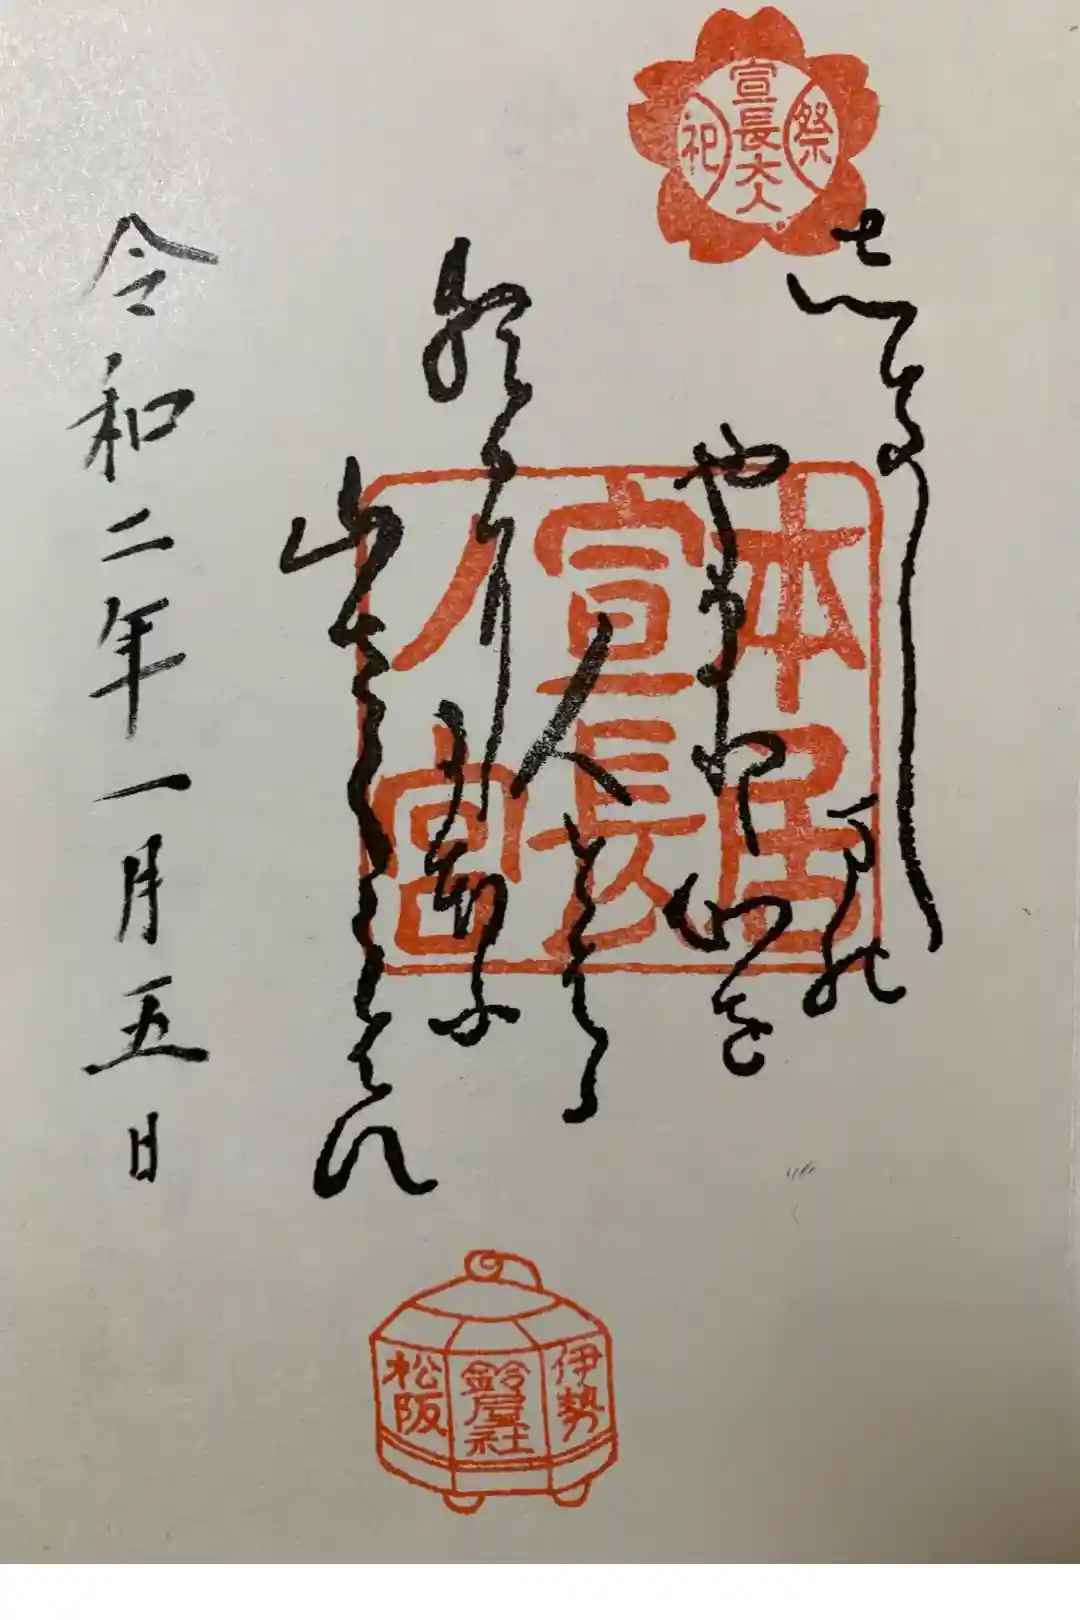 祭
宣長大人
祀
志きしまの
やまと心を
人とはゝ
朝日に
にほふ
山さくらはな
本居
宣長
ノ宮
令和二年一月五日
伊勢
鈴屋社
松阪